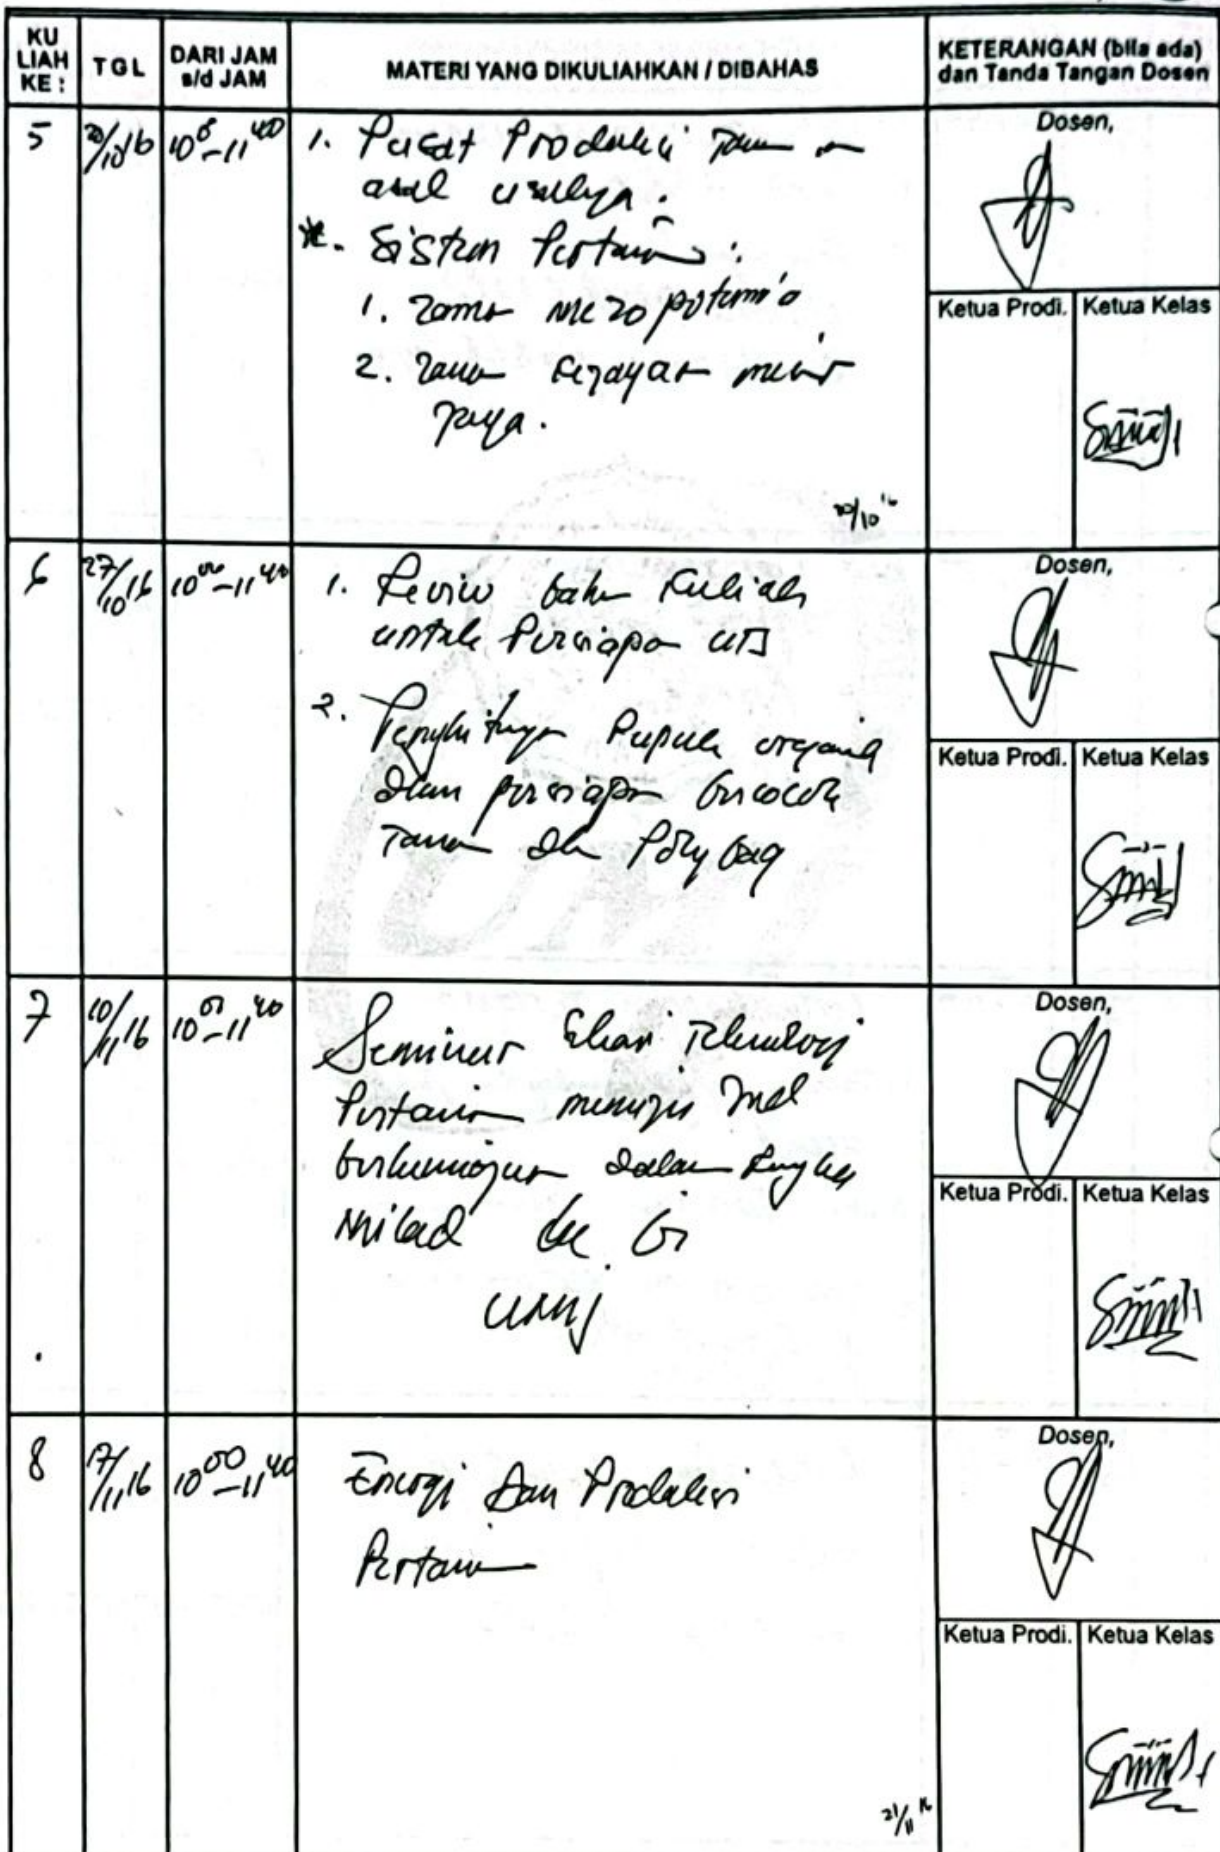 KU LIAH KE :
TGL
DARI JAM s/d JAM
MATERI YANG DIKULIAHKAN / DIBAHAS
KETERANGAN (bila ada) dan Tanda Tangan Dosen
5
20/10 16
10 00 - 11 40
1. Pusat Produksi
asal usulnya.
*. Sistem Pertanian :
1. Zaman Mezopotamia
2. Zaman Kejayaan
20/10 16
Dosen,
Ketua Prodi.
Ketua Kelas
6
27/10 16
10 00 - 11 40
1. Review bahan Kuliah
untuk Persiapan UTS
2. Penghitungan Pupuk organik
dlam persiapan bercocok
Tanam dlm Polybag
Dosen,
Ketua Prodi.
Ketua Kelas
7
10/11 16
10 00 - 11 40
Seminar Sehari Teknologi
Pertanian menuju
berkemajuan dalam Rangka
Milad ke 61
UMJ
Dosen,
Ketua Prodi.
Ketua Kelas
8
17/11 16
10 00 - 11 40
Energi dan Produksi
Pertanian
21/11 16
Dosen,
Ketua Prodi.
Ketua Kelas